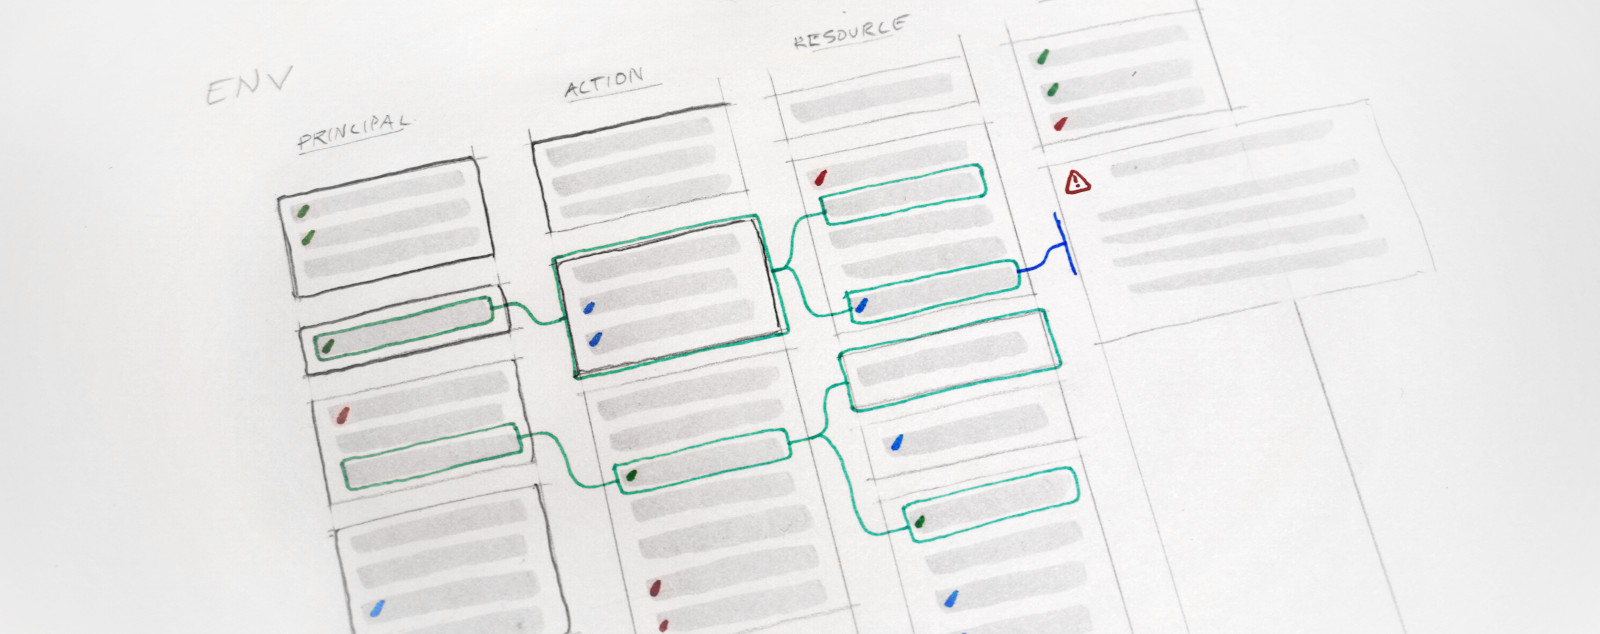 ENV
PRINCIPAL
ACTION
RESOURCE